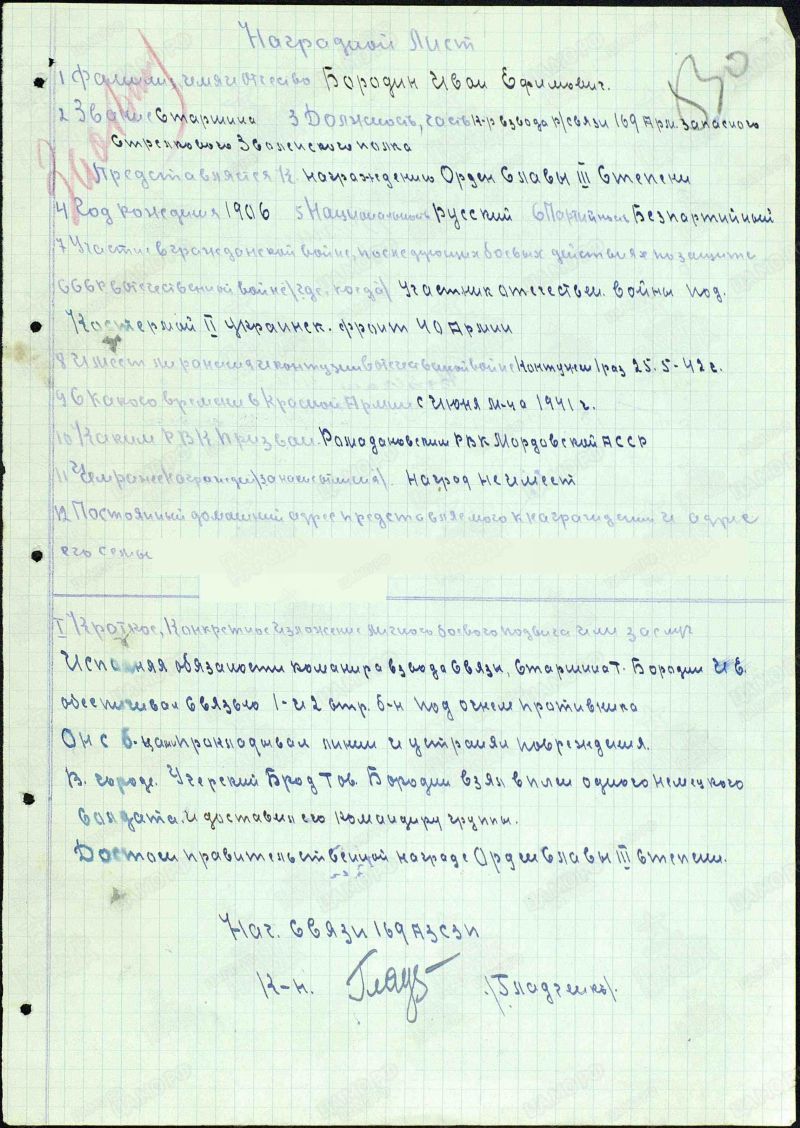 Наградной Лист
1 Фамилия, имя и отчество Бородин Иван Ефимович.
2 Звание Старшина 3 Должность, часть К-р взвода р/связи 169 Арм. запасного
Стрелкового Зволенского полка
Представляется к награждению Орден Славы III Степени
4 Год рождения 1906 5 Национальность Русский 6 Партийность Безпартийный
7 Участие в гражданской войне, последующих боевых действиях по защите
СССР в отечественной войне (где, когда) Участник отечествен. войны под.
II Украинск. фронт 40 Армии
8 Имеет ли ранения и контузии в отечественной войне Контужен 1 раз 25.5-42 г.
9 С какого времени в Красной Армии с Июня м-ца 1941 г.
10 Каким РВК Призван. Ромадановским РВК Мордовской АССР
11 Чем ранее награжден (за какие отличия). Наград не имеет
12 Постоянный домашний адрес представляемого к награждению и адрес
его семьи
I Краткое, Конкретное изложение личного боевого подвига или заслуг
Исполняя обязаности командира взвода связи, Старшина т. Бородин И.Е.
обеспечивал связью 1-и 2 стр. б-н под огнем противника
Он с б-цами прокладывал линии и устранял повреждения.
В. городе. Угерский Брод тов. Бородин взял в плен одного немецкого
солдата. и доставил его командиру группы.
Достоин правительственной награде Орден Славы III Степени.
Нач. связи 169 АЗСЗП
К-н. /Гладченко/.